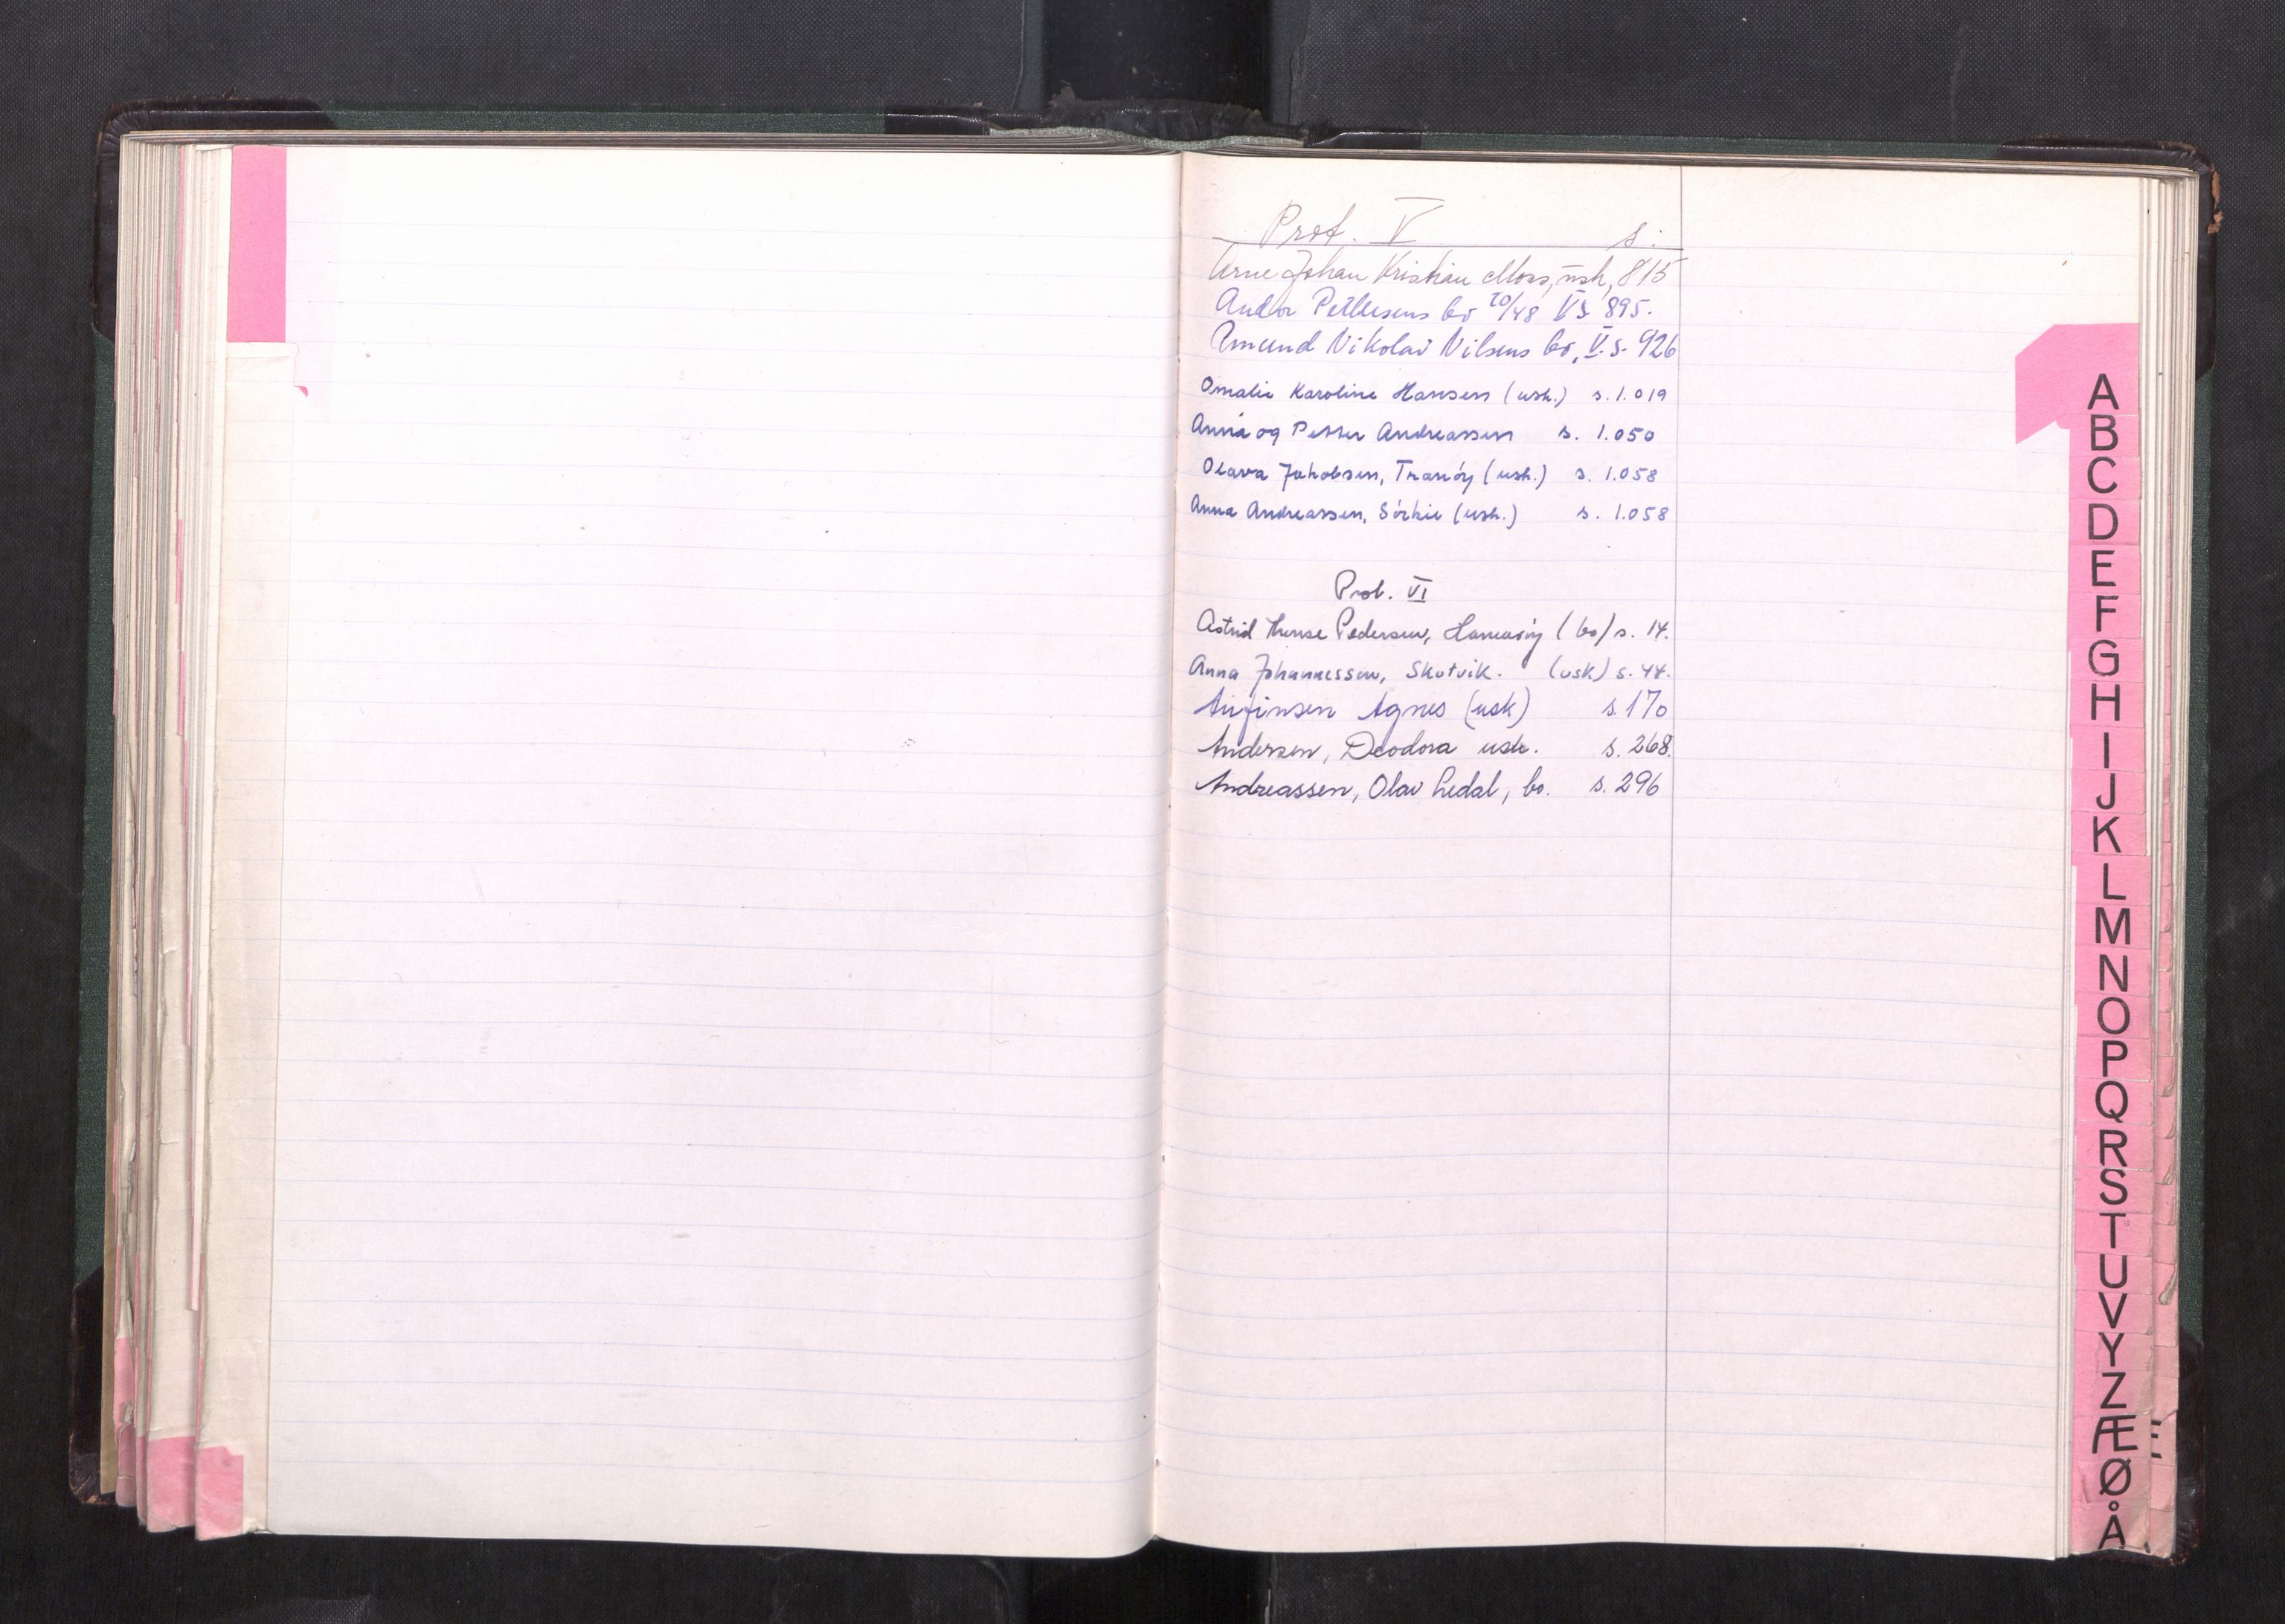 Prot. V s:
Arne Johan Kristian Moss, usk, 815
Andor Pettersens bo 20/48 V s 895.
Amund Nikolai Nilsens bo, V. s. 926
Omalie Karoline Hansen (usk.) s. 1.019
Anna og Petter Andreassen s. 1.050
Olava Jakobsen, Tranöy (usk.) s. 1.058
Anna Andreassen, (usk.) s. 1.058
Prot. VI
Astrid Pedersen, Hamaröy (bo) s. 14.
Anna Johannessen, Skotvik. (usk) s. 44.
Agnes (usk) s. 170
Andersen, Deodora usk. s. 268.
Andreassen, Olav Ledal, bo. s. 296
A
B
C
D
E
F
G
H
I
J
K
L
M
N
O
P
Q
R
S
T
U
V
Y
Z
Æ
Ø
Å